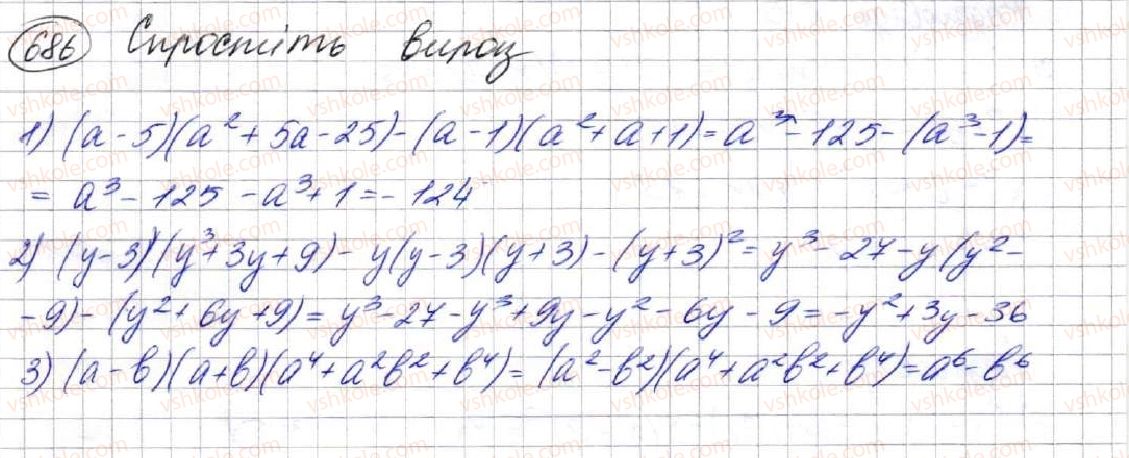 686 Спростіть вираз
1) (a - 5)(a² + 5a - 25) - (a - 1)(a² + a + 1) = a³ - 125 - (a³ - 1) =
= a³ - 125 - a³ + 1 = - 124
2) (y - 3)(y³ + 3y + 9) - y(y - 3)(y + 3) - (y + 3)² = y³ - 27 - y(y² -
- 9) - (y² + 6y + 9) = y³ - 27 - y³ + 9y - y² - 6y - 9 = -y² + 3y - 36
3) (a - b)(a + b)(a⁴ + a²b² + b⁴) = (a² - b²)(a⁴ + a²b² + b⁴) = a⁶ - b⁶